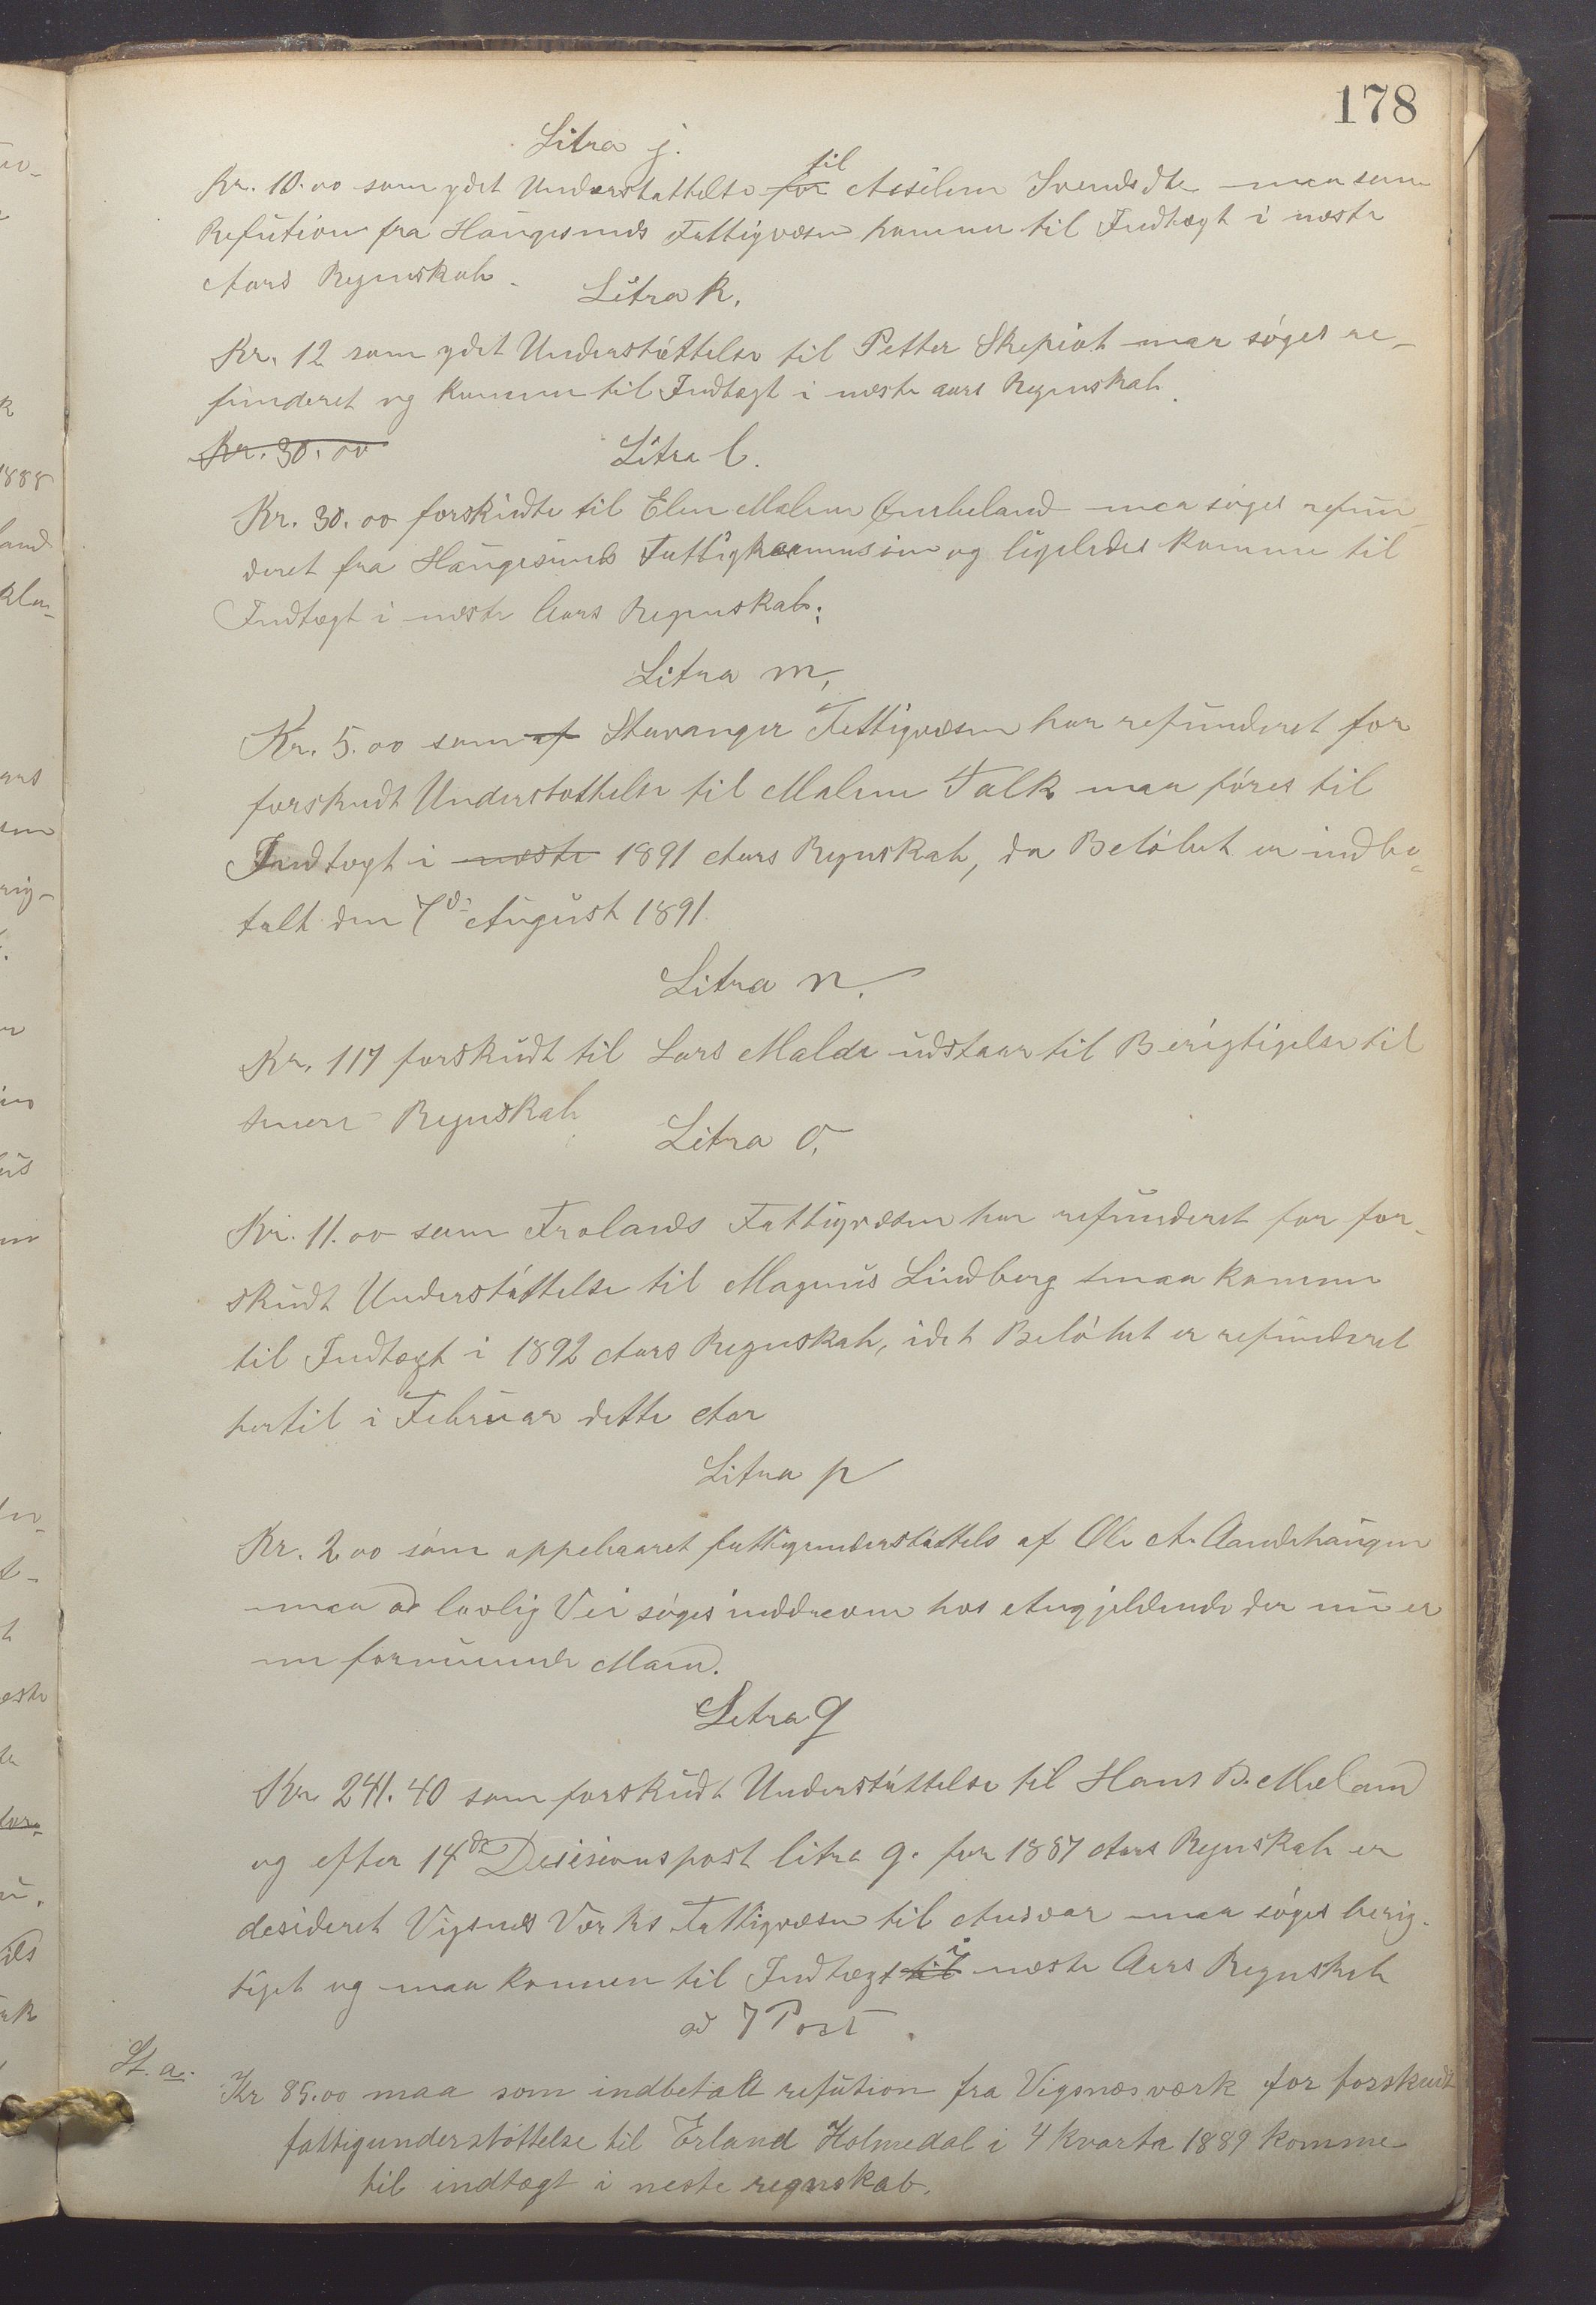 178
Litra j.
Kr. 10.00 som ydet Understøttelse for til Assiline Svendsdtr maa som
Refution fra Haugesunds Fattigvæsen komme til Indtægt i næste
Aars Regnskab.
Litra k.
Kr. 12 som ydet Understøttelse til Petter maa søges re-
funderet og komme til Indtægt i næste aars Regnskab.
Kr. 30.00
Litra l.
Kr. 30.00 forskudte til Elen Malene maa søges refun-
deret fra Haugesunds og ligeledes komme til
Indtægt i næste Aars Regnskab.
Litra m.
Kr. 5.00 som af Stavanger Fattigvæsen har refunderet for
forskudt Understøttelse til Malene Falk maa føres til
Indtægt i næste 1891 Aars Regnskab, da Beløbet er indbe-
talt den 7de August 1891.
Litra n.
Kr. 117 forskudt til Lars Malde udstaar til Berigtigelse til
senere Regnskab
Litra o.
Kr. 11.00 som Frolands Fattigvæsen har refunderet for for-
skudt Understøttelse til Magnus Lindberg maa komme
til Indtægt i 1892 Aars Regnskab, idet Beløbet er refunderet
hertil i Februar dette Aar
Litra p
Kr. 2.00 som oppebaaret fattigunderstøttels af Ole A. Aandehaugen
maa ad lovlig Vei søges inddreven hos Angjeldende der nu er
en formuende Mand.
Litra q
Kr. 241.40 som forskudt Understøttelse til Hans B. Mæland
og efter 14de Desisionspost litra g. for 1887 Aars Regnskab er
desideret Vigsnes Værks Fattigvæsen til Ansvar maa søges berig-
tiget og maa kommen til Indtægt til i næste Aars Regnskab
ad 7 Post.
Lt. a.
Kr 85.00 maa som indbetalt refution fra Vigsnæsværk for forskudt
fattigunderstøttelse til Erland Holmedal i 4 kvarta 1889 komme
til indtægt i neste regnskab.